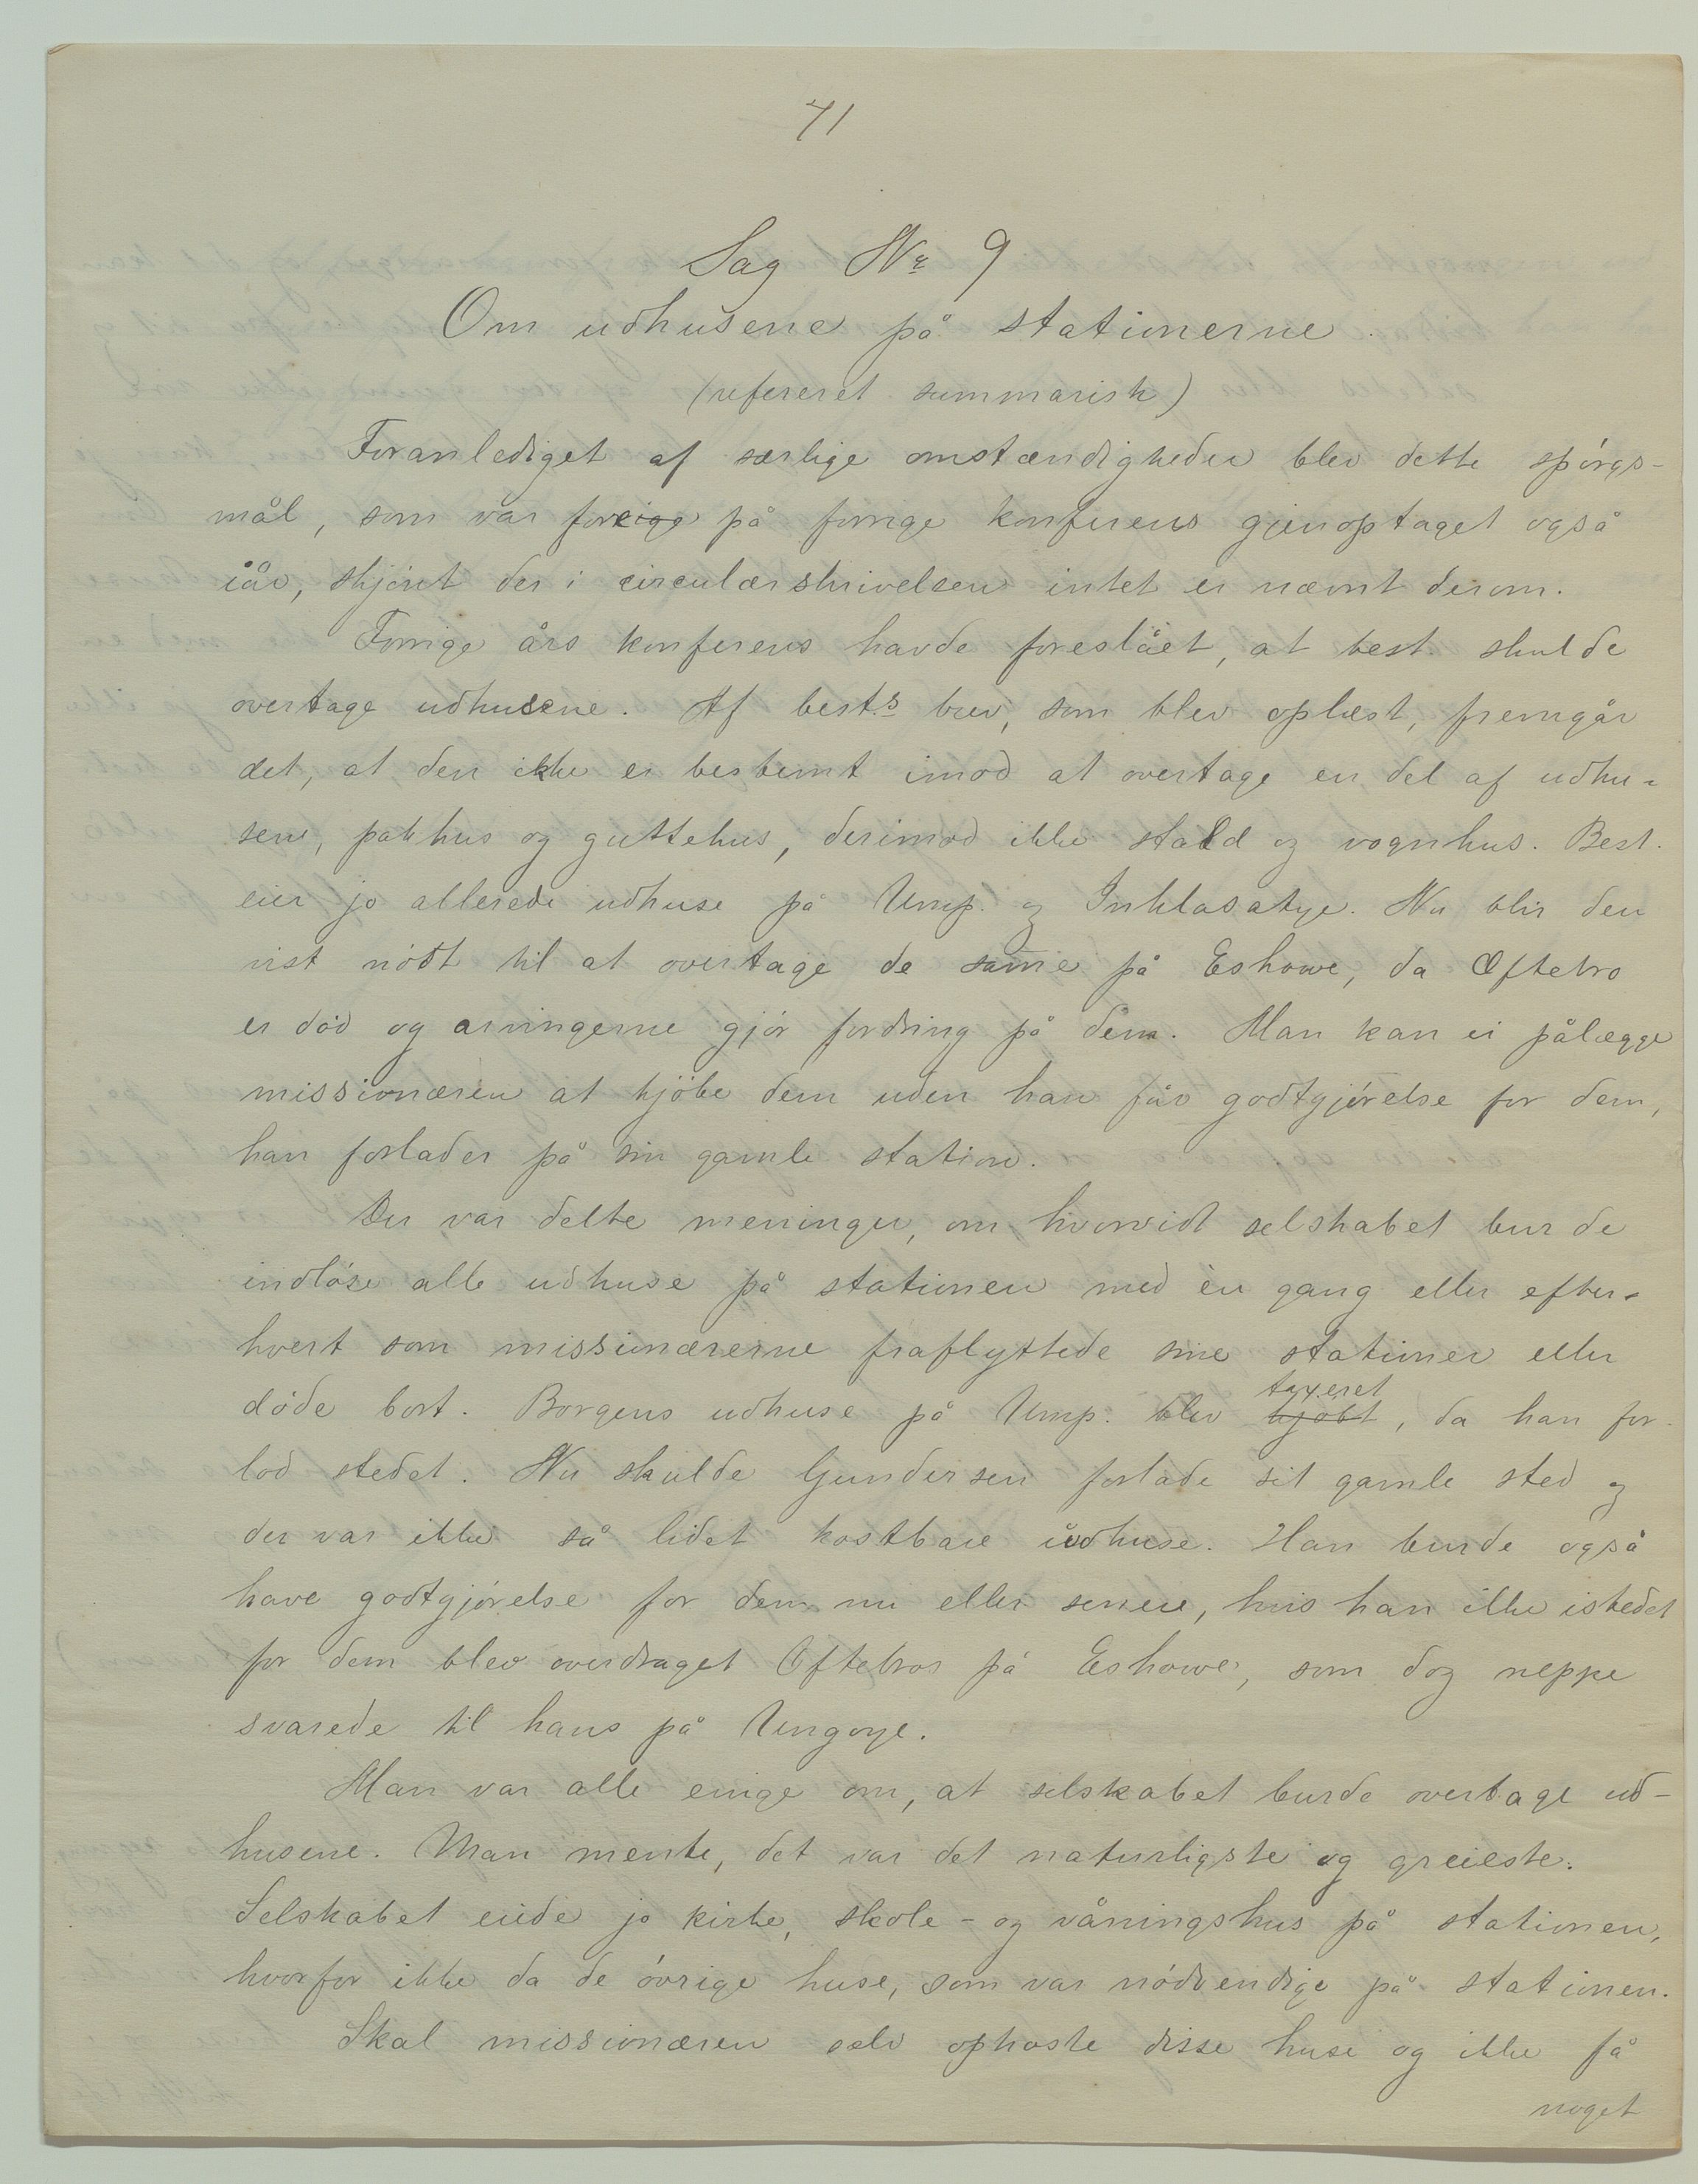 71
Sag Nr 9
Om udhusene på stationerne.
(refereret summarisk)
Foranlediget af særlige omstændigheder blev dette spörgs-
mål, som var foreige på forrige konferens gjenoptaget også
iår, skjönt der i circulærskrivelsen intet er nævnt derom.
Forrige års konferens havde foreslået, at best. skulde
overtage udhusene. Af best.s brev, som blev oplæst, fremgår
det, at den ikke er bestemt imod at overtage en del af udhu-
sene, pakhus og guttehus, derimod ikke stald og vognhus. Best.
eier jo allerede udhuse på Ump. og Inhlasatye. Nu blir den
vist nödt til at overtage de samme på Eshowe, da Oftebro
er död og arvingerne gjör fordring på dem. Man kan ei pålægge
missionæren at kjöbe dem uden han får godtgjörelse for dem,
han forlader på sin gamle station.
Der var delte meninger, om hvorvidt selskabet burde
indlöse alle udhuse på stationen med èn gang eller efter-
hvert som missionærerne fraflyttede sine stationer eller
döde bort. Borgens udhuse på Ump. blev kjöbt taxeret, da han for-
lod stedet. Nu skulde Gundersen forlade sit gamle sted og
der var ikke så lidet kostbare udhuse. Han burde også
have godtgjörelse for dem nu eller senere, hvis han ikke istedet
for dem blev overdraget Oftebros på Eshowe, som dog neppe
svarede til hans på Ungoye.
Man var alle enige om, at selskabet burde overtage ud-
husene. Man mente, det var det naturligste og greieste.
Selskabet eiede jo kirke, skole- og våningshus på stationen,
hvorfor ikke da de övrige huse, som var nödvendige på stationen.
Skal missionæren selv ophoste disse huse og ikke få
noget